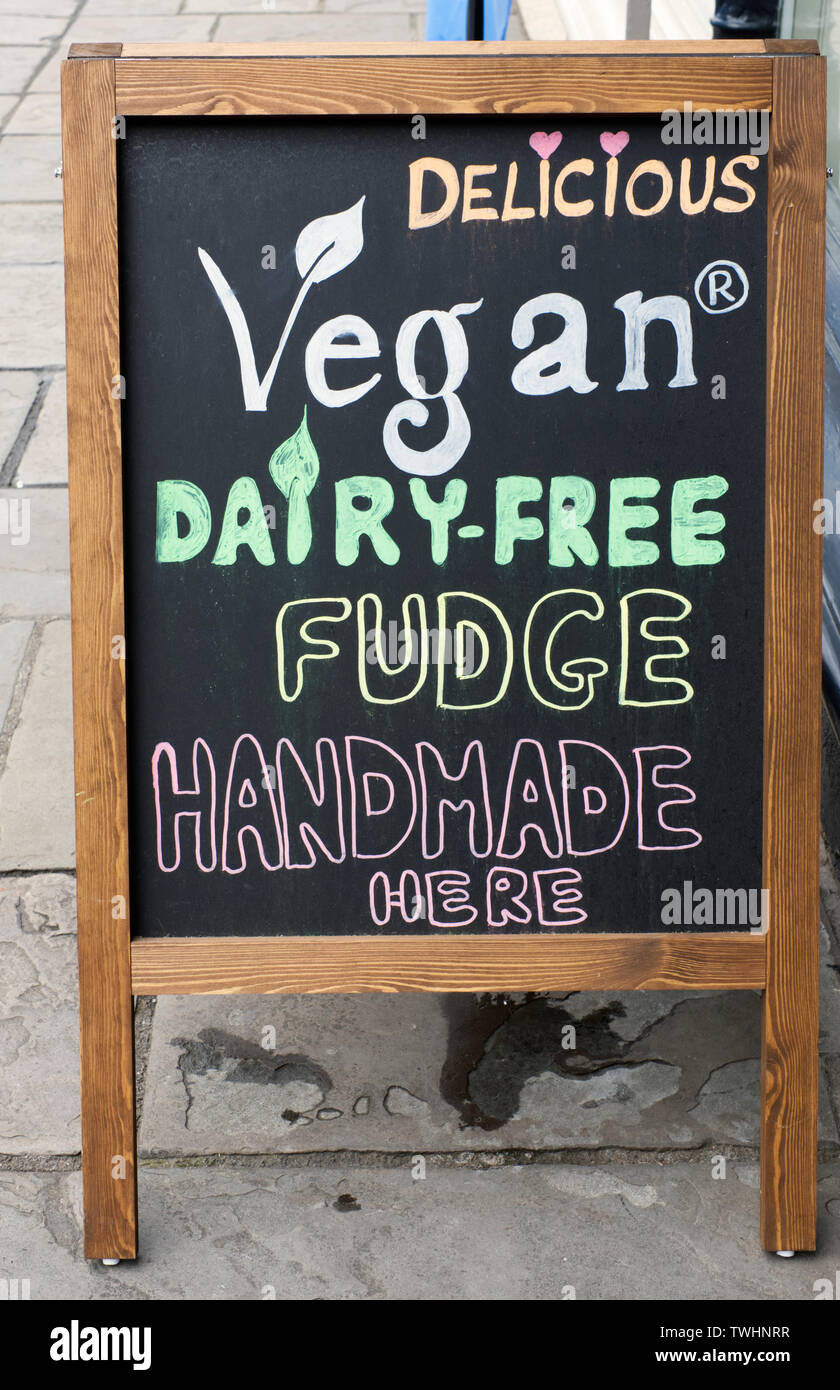 DELICIOUS
Vegan®
DAIRY-FREE
FUDGE
HANDMADE
HERE
alamy
Image ID: TWHNRR
www.alamy.com